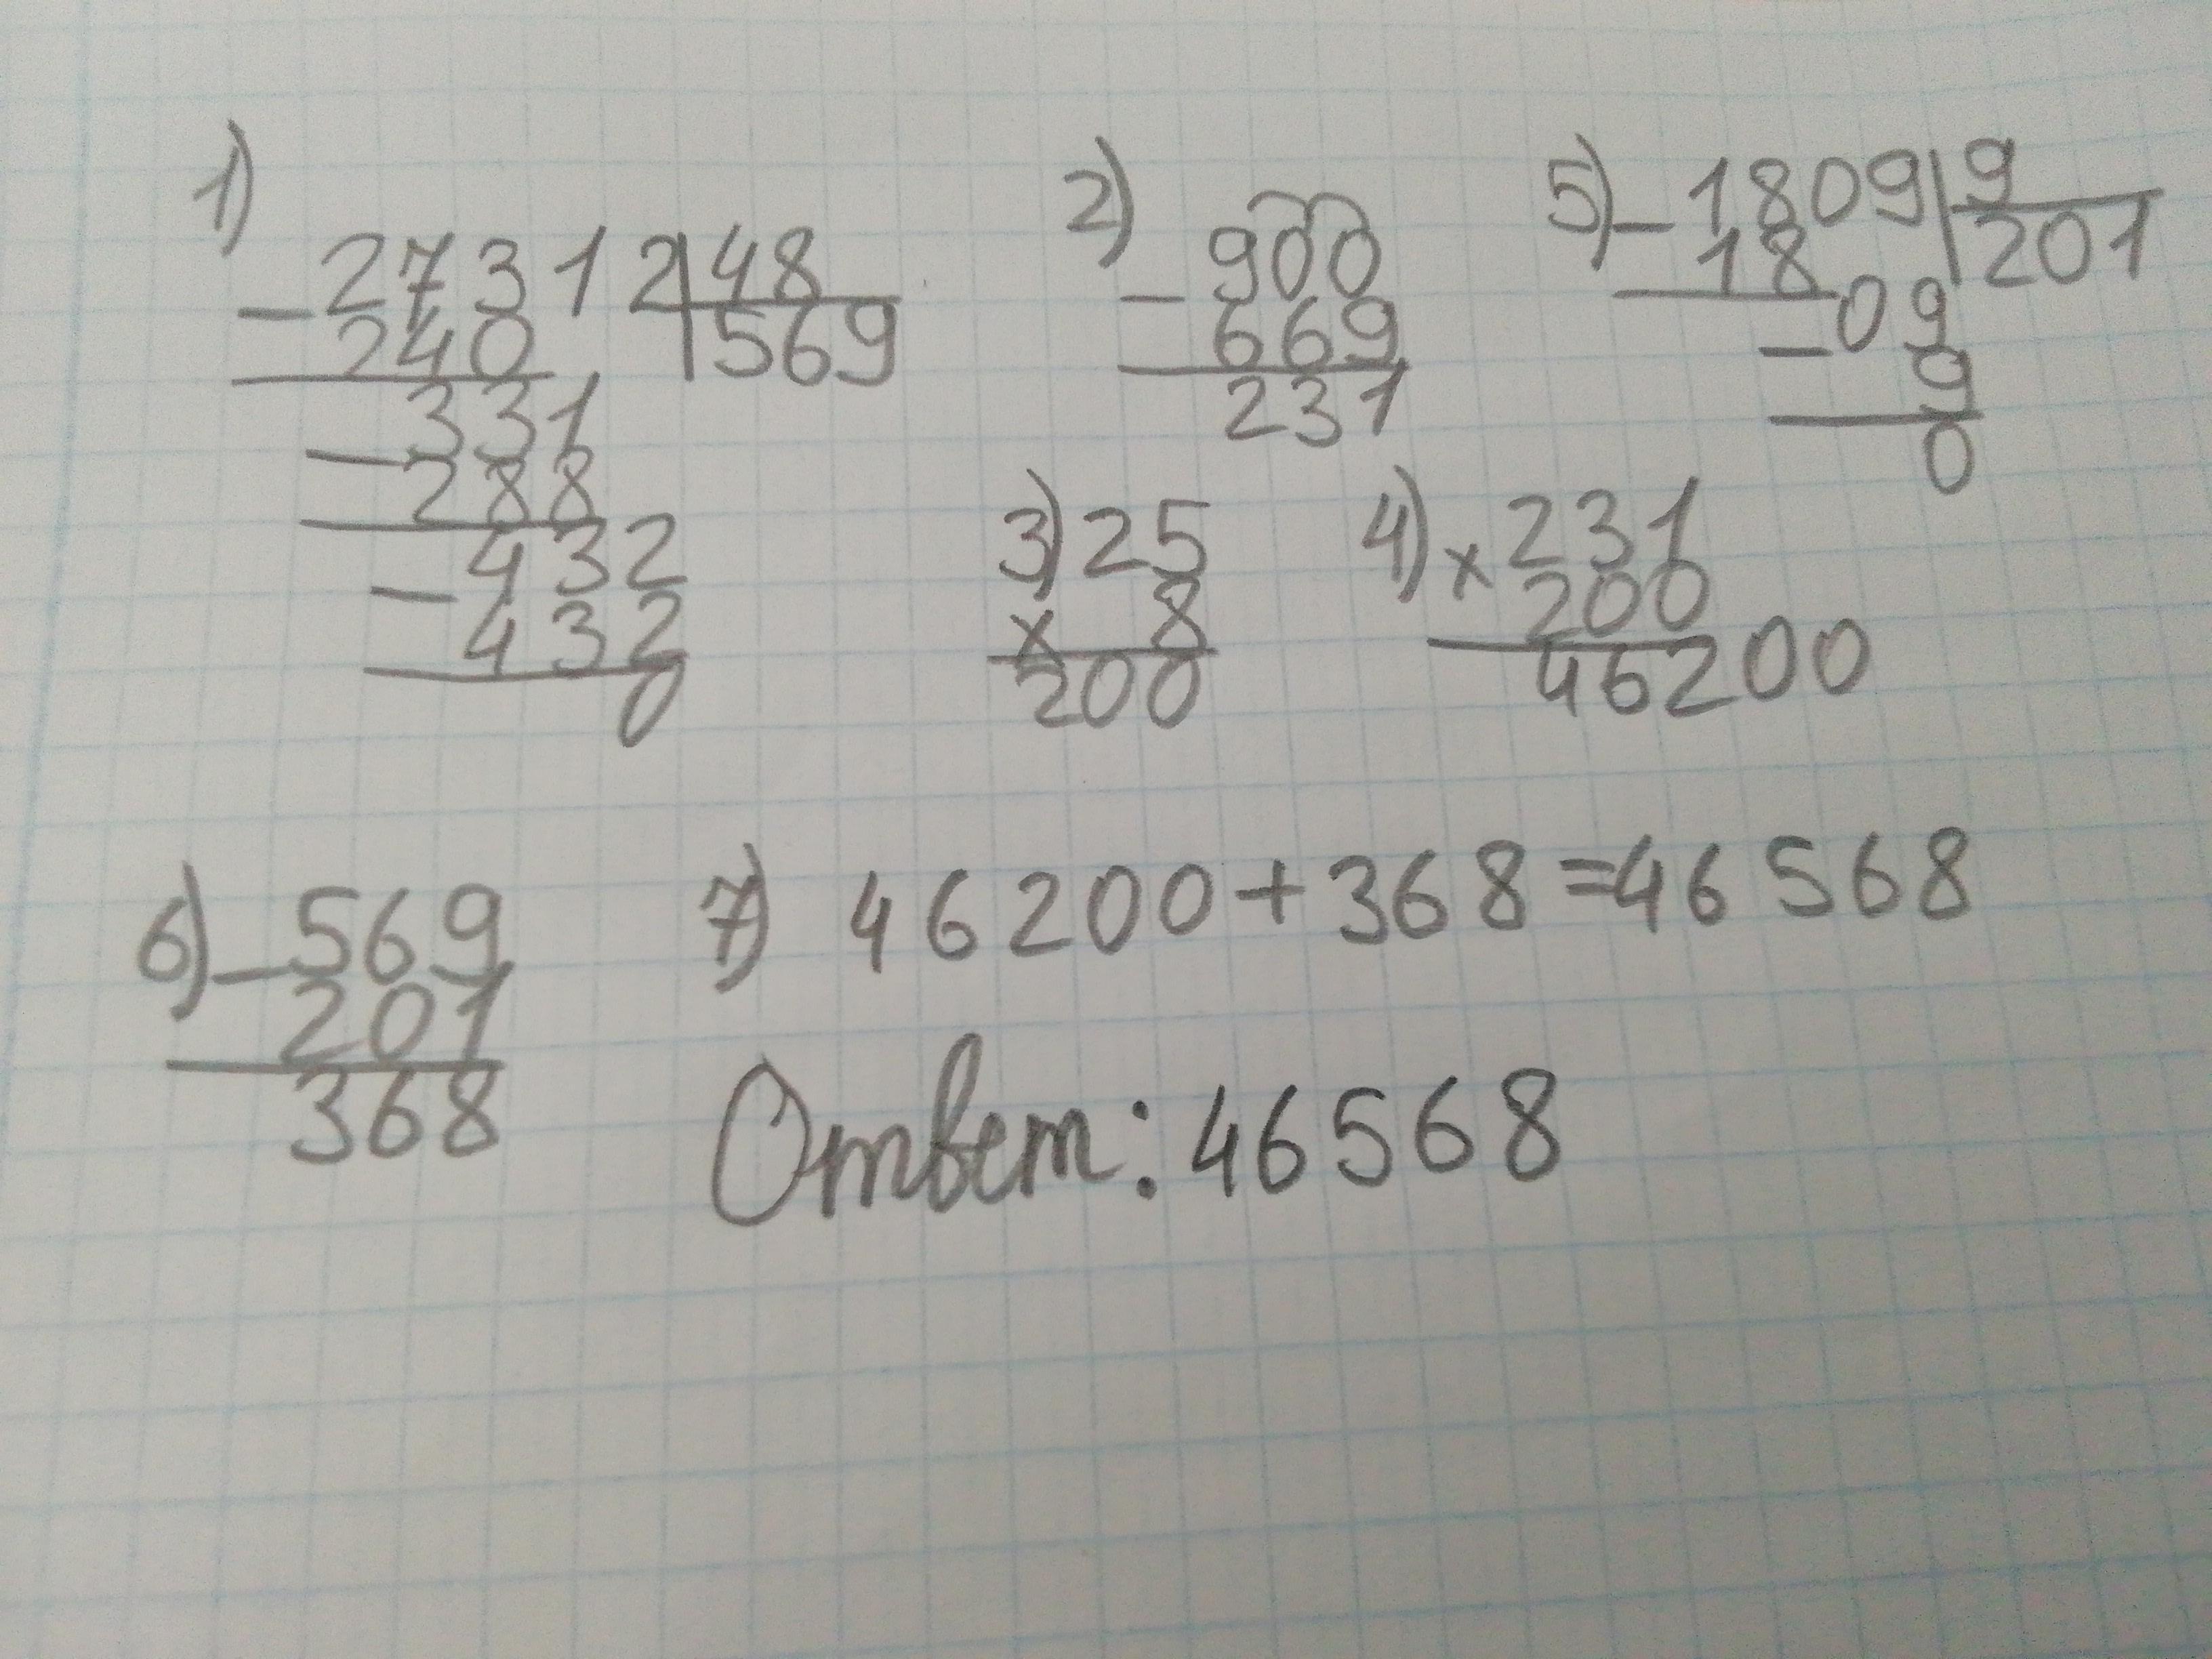 1)
27312 48
- 240 569
331
- 288
432
- 432
0
2)
900
- 669
231
5) - 1809 9
18 201
- 09
9
0
3) 25
x 8
200
4) x 231
200
46200
6) - 569
201
368
7) 46200+368=46568
Ответ: 46568